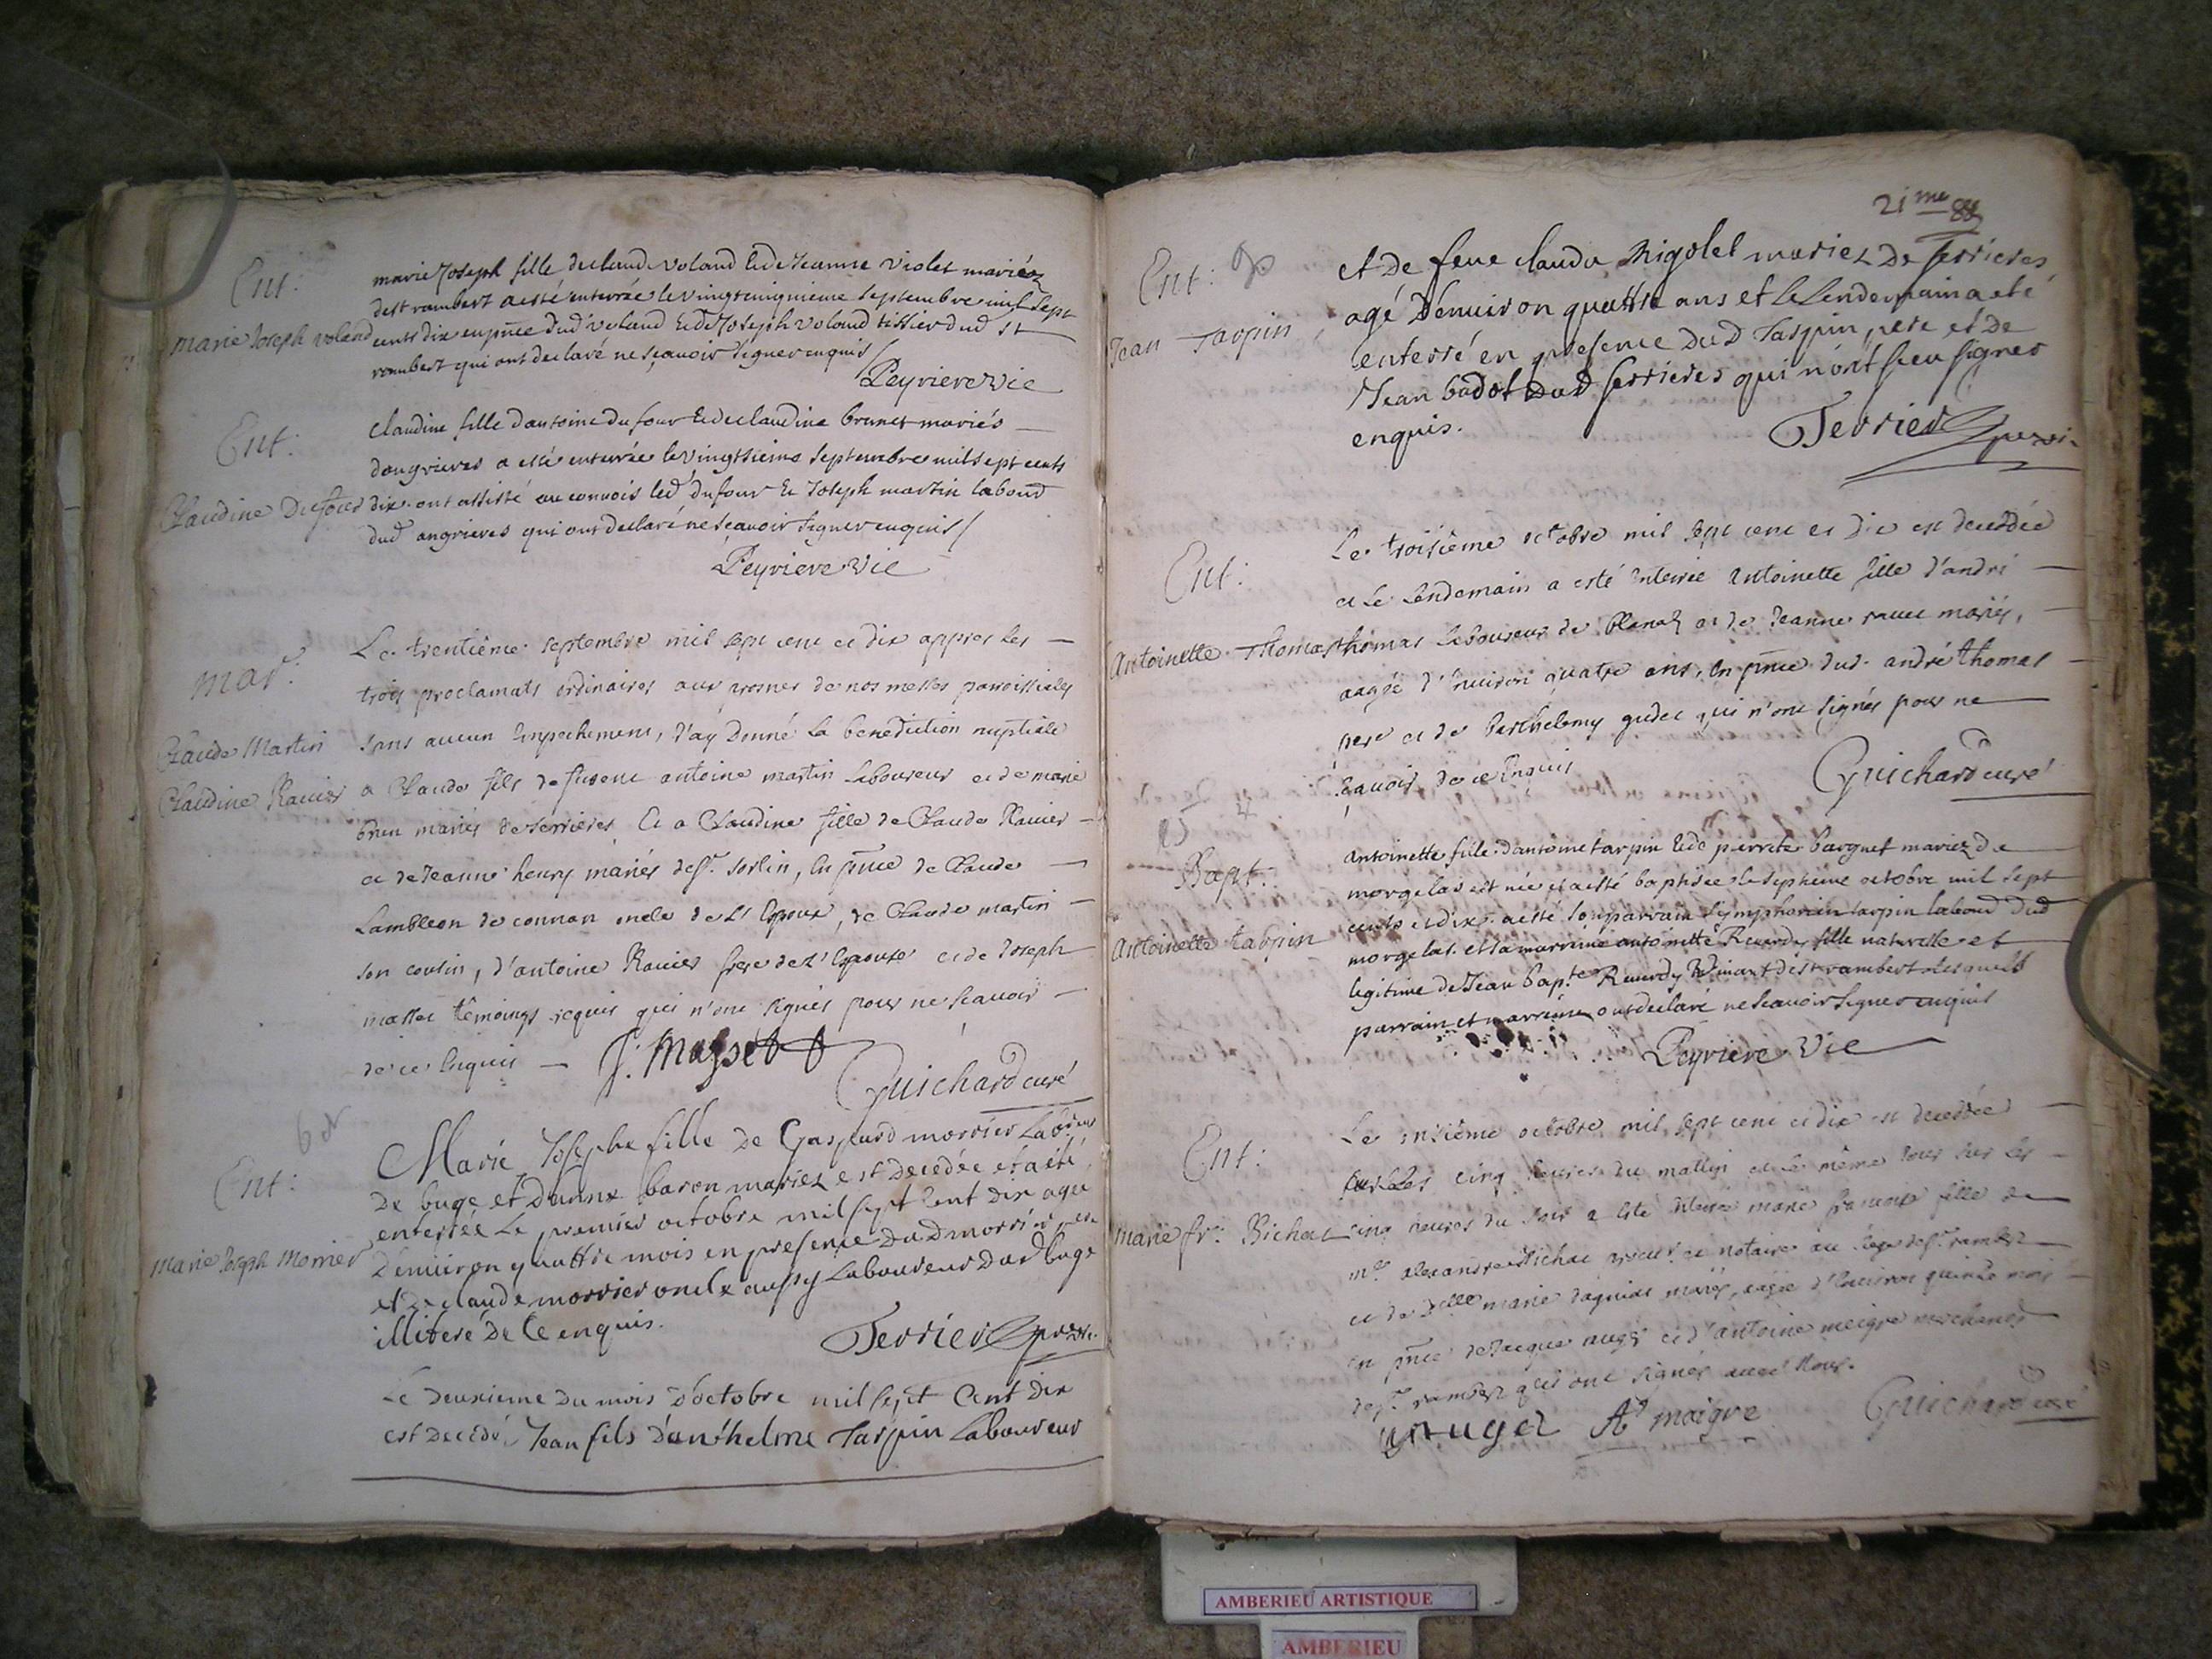 Ent:
marie Joseph voland
marie Joseph fille de claude voland & de Jeanne violet mariéz
de st rambert a esté enterrée le vingt cinquieme septembre mil sept
cents dix en pñce dud voland & de Joseph voland tissier dud st
rambert qui ont declaré ne sçavoir signer enquis /
Peyriere vic
Ent:
Claudine Dufour
claudine fille d'antoine du four & de claudine brunet mariés
dangrieres a esté enterrée le vingtsieme septembre mil sept cents
dix. ont assisté au convois led dufour & Joseph martin labour
dud angrieres qui ont declaré ne sçavoir signer enquis /
Peyriere vic
mar:
Claude Martin
Claudine Ravier
Le trentième septembre mil sept cent et dix appres les
trois proclamats ordinaires aux prosnes de nos messes parroissiales
sans aucun Empechement, J'ay donné la benediction nuptiale
a Claude fils de fu antoine martin laboureur et de marie
brun mariés de serrieres Et a Claudine fille de Claude Ravier
et de Jeanne heury mariés de st. sorlin, En pñce de Claude
Lambleon de connan oncle de L'Epoux, de Claude martin
son cousin, d'antoine Ravier frere de L'Epouse et de Joseph
masset têmoings requis qui n'ont signés pour ne scavoir
de ce Enquis J. Masset
Guichard curé
Ent:
Marie Joseph Morrier
Marie Josephe fille de Gaspard morrier Laboureur
de buge et d'anne baron mariez est decedée et a été
enterrée Le premier octobre mil sept Cent dix agee
d'enuiron quattre mois en presence dud morrier pere
et de claude morrier oncle aussy Laboureur dud buge
illiteré de Ce enquis.
Terrier
Le deuxieme du mois d'octobre mil sept Cent dix
est decedé Jean fils d'anthelme Tarpin Laboureur
21me
88
Ent:
Jean Tarpin
et de feue clauda Rigolet mariez de serrieres
agé d'enuiron quattre ans et Le Lendemain a eté
enterré en presence dud Tarpin pere et de
Jean badot dud serrieres qui n'ont sceu signer
enquis.
Terrier
Ent:
Antoinette Thomas
Le troisième octobre mil sept cent et dix est decedée
et Le Lendemain a esté Enterrée Antoinette fille d'andré
thomas laboureur de et de Jeanne mariés,
aagée d'Enuiron quatre ans, En pñce dud. andré thomas
pere et de Barthelemy qui n'ont signés pour ne
scauoir de ce Enquis
Guichard curé
Bapt:
Antoinette tarpin
Antoinette fille d'antoine tarpin & de pierrete barquet mariez de
morgelas est née et a esté baptisée le septieme octobre mil sept
cents et dix. a esté son parrain symphorien tarpin labour dud
morgelas et sa marraine antoinette Reverdy fille naturelle et
legitime de Jean Bapte Reverdy de st rambert lesquels
parrain et marraine ont declaré ne scavoir signer enquis
Peyriere Vic
Ent:
marie fr: Bichat
Le onzième octobre mil sept cent et dix est decedée
sur Les cinq heures du mattin et Le même Jour sur Les
cinq heures du soir a esté Enterrée marie françoise fille de
mre alexandre Bichat et notaire au siege de st. rambert
et de Delle marie mariés, aagée d'Enuiron quinze mois
En pñce de Jacque auger et d'antoine meigre marchands
de st. rambert qui ont signés avec Nous.
auger At maigre
Guichard curé
AMBERIEU ARTISTIQUE
AMBERIEU